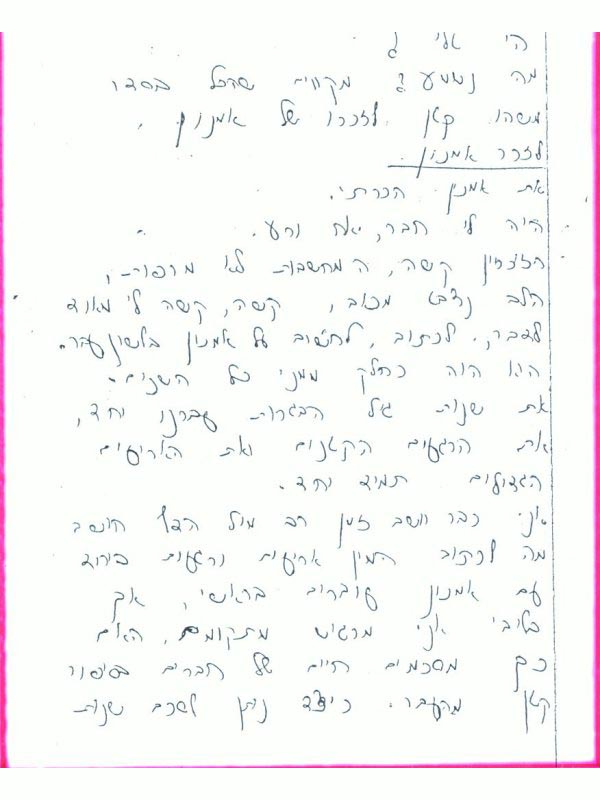 היי אלי !
מה נשמע ? מקווים שהכל בסדר
משהו קטן לזכרו של אמנון .
לזכר אמנון .
את אמנון הכרתי.
היה לי חבר, אח ורע.
הזכרון קשה, המחשבות לא מרפות,
הלב נצבט מכאב, קשה, קשה לי מאוד
לדבר, לכתוב, לחשוב על אמנון בלשון עבר.
הוא היה כחלק ממני כל השנים.
את שנות גיל הבגרות עברנו יחד,
את הרגעים הקטנים ואת האריעים
הגדולים תמיד יחד.
אני כבר יושב זמן רב מול הדף חושב
מה לכתוב המון אריעים ורגעים ביחד
עם אמנון עוברים בראשי, אך
בליבי אני מרגיש מתקומם, האם
כך מסכמים חיים של חברים בסיפור
קטן מהעבר. כיצד ניתן לסכם שנות